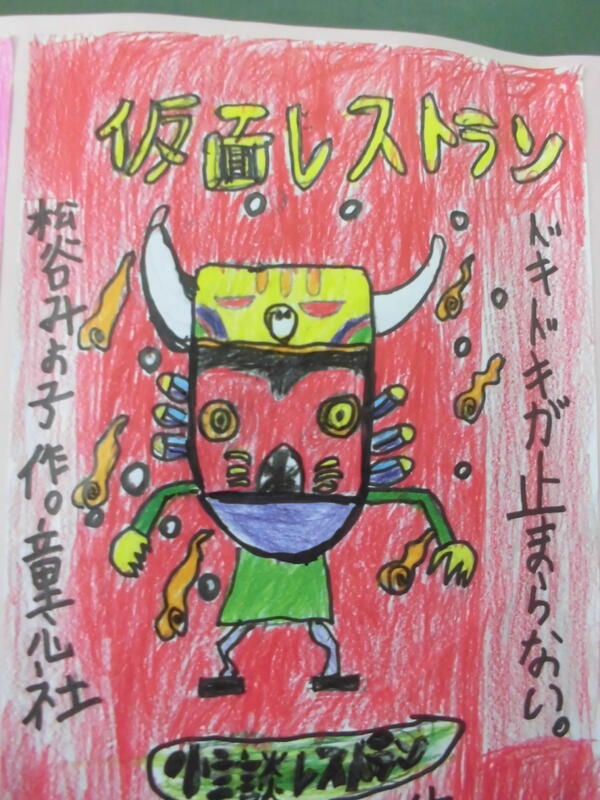 仮面レストラン
ドキドキが止まらない。
松谷みよ子作。童心社
怪談レストラン